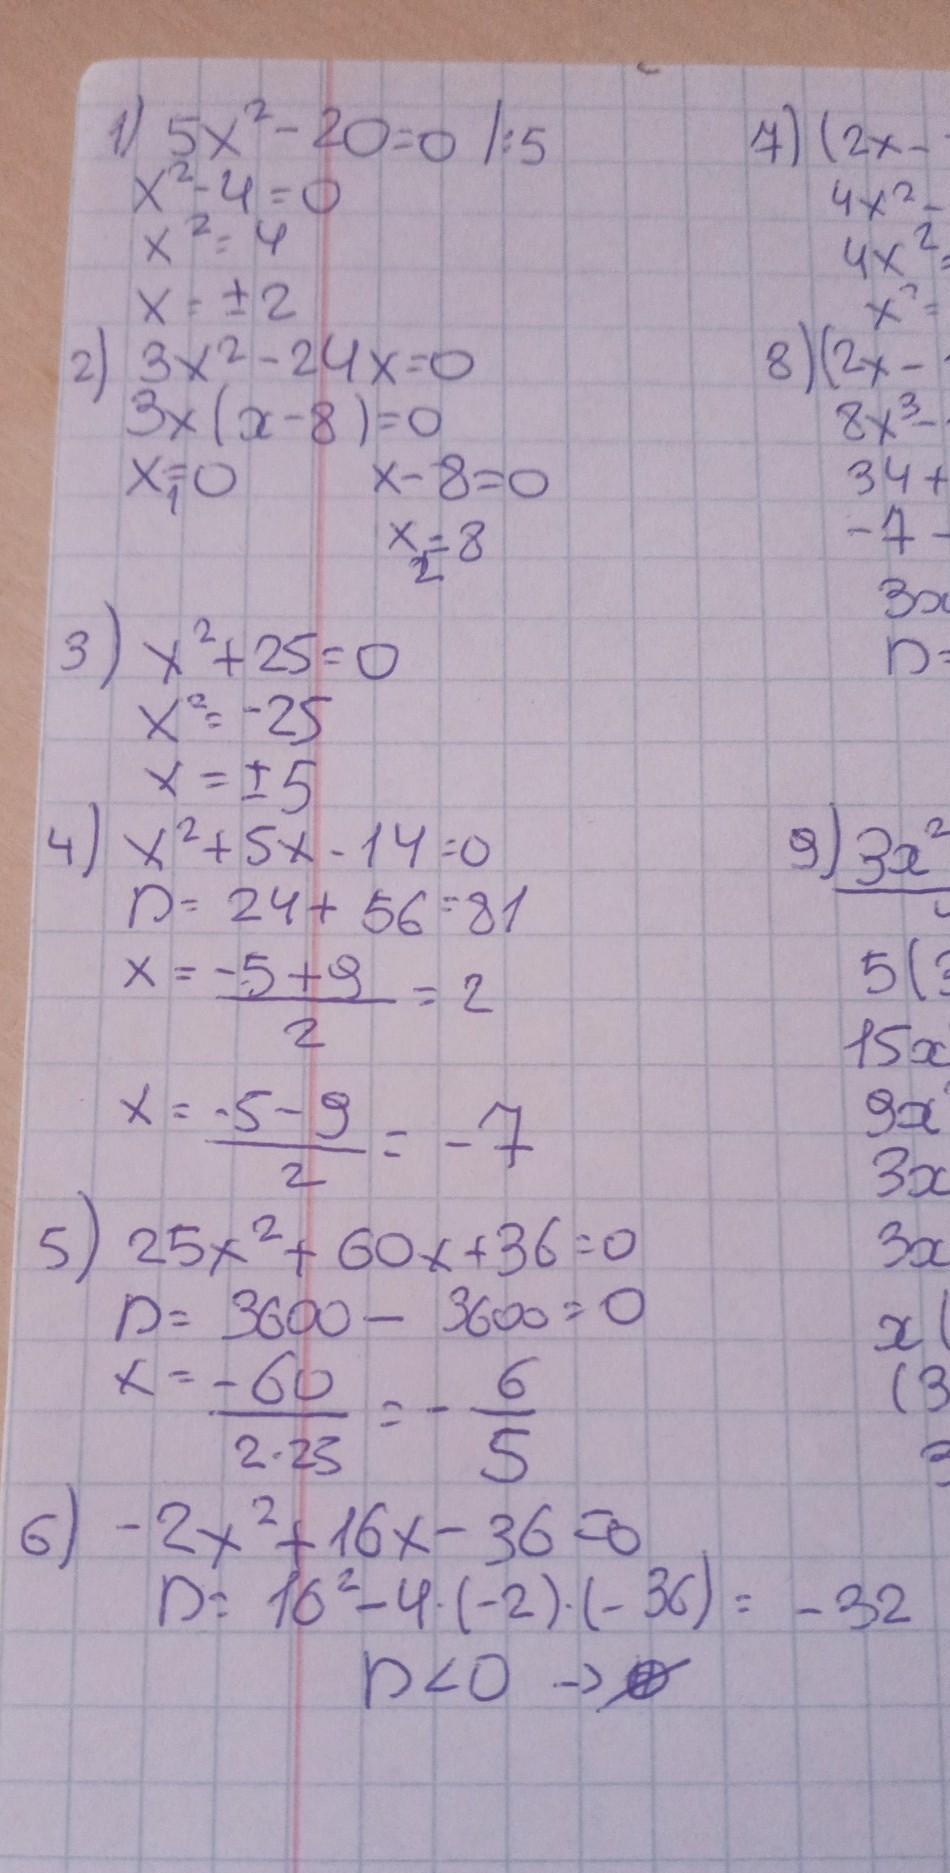 1) 5x² - 20 = 0 /:5
x² - 4 = 0
x² = 4
x = ± 2
2) 3x² - 24x = 0
3x(x - 8) = 0
x₁ = 0 x - 8 = 0
x₂ = 8
3) x² + 25 = 0
x² = -25
x = ± 5
4) x² + 5x - 14 = 0
D = 24 + 56 = 81
x = (-5 + 9)/2 = 2
x = (-5 - 9)/2 = -7
5) 25x² + 60x + 36 = 0
D = 3600 - 3600 = 0
x = -60/(2·25) = -6/5
6) -2x² + 16x - 36 = 0
D = 16² - 4·(-2)·(-36) = -32
D < 0 → ∅
7) (2x -
4x² -
4x² =
x² =
8) (2x -
8x³ -
34 +
-7 -
3x
D =
9) 3x²
5(3
15x
9x
3x
3x
x(
(3